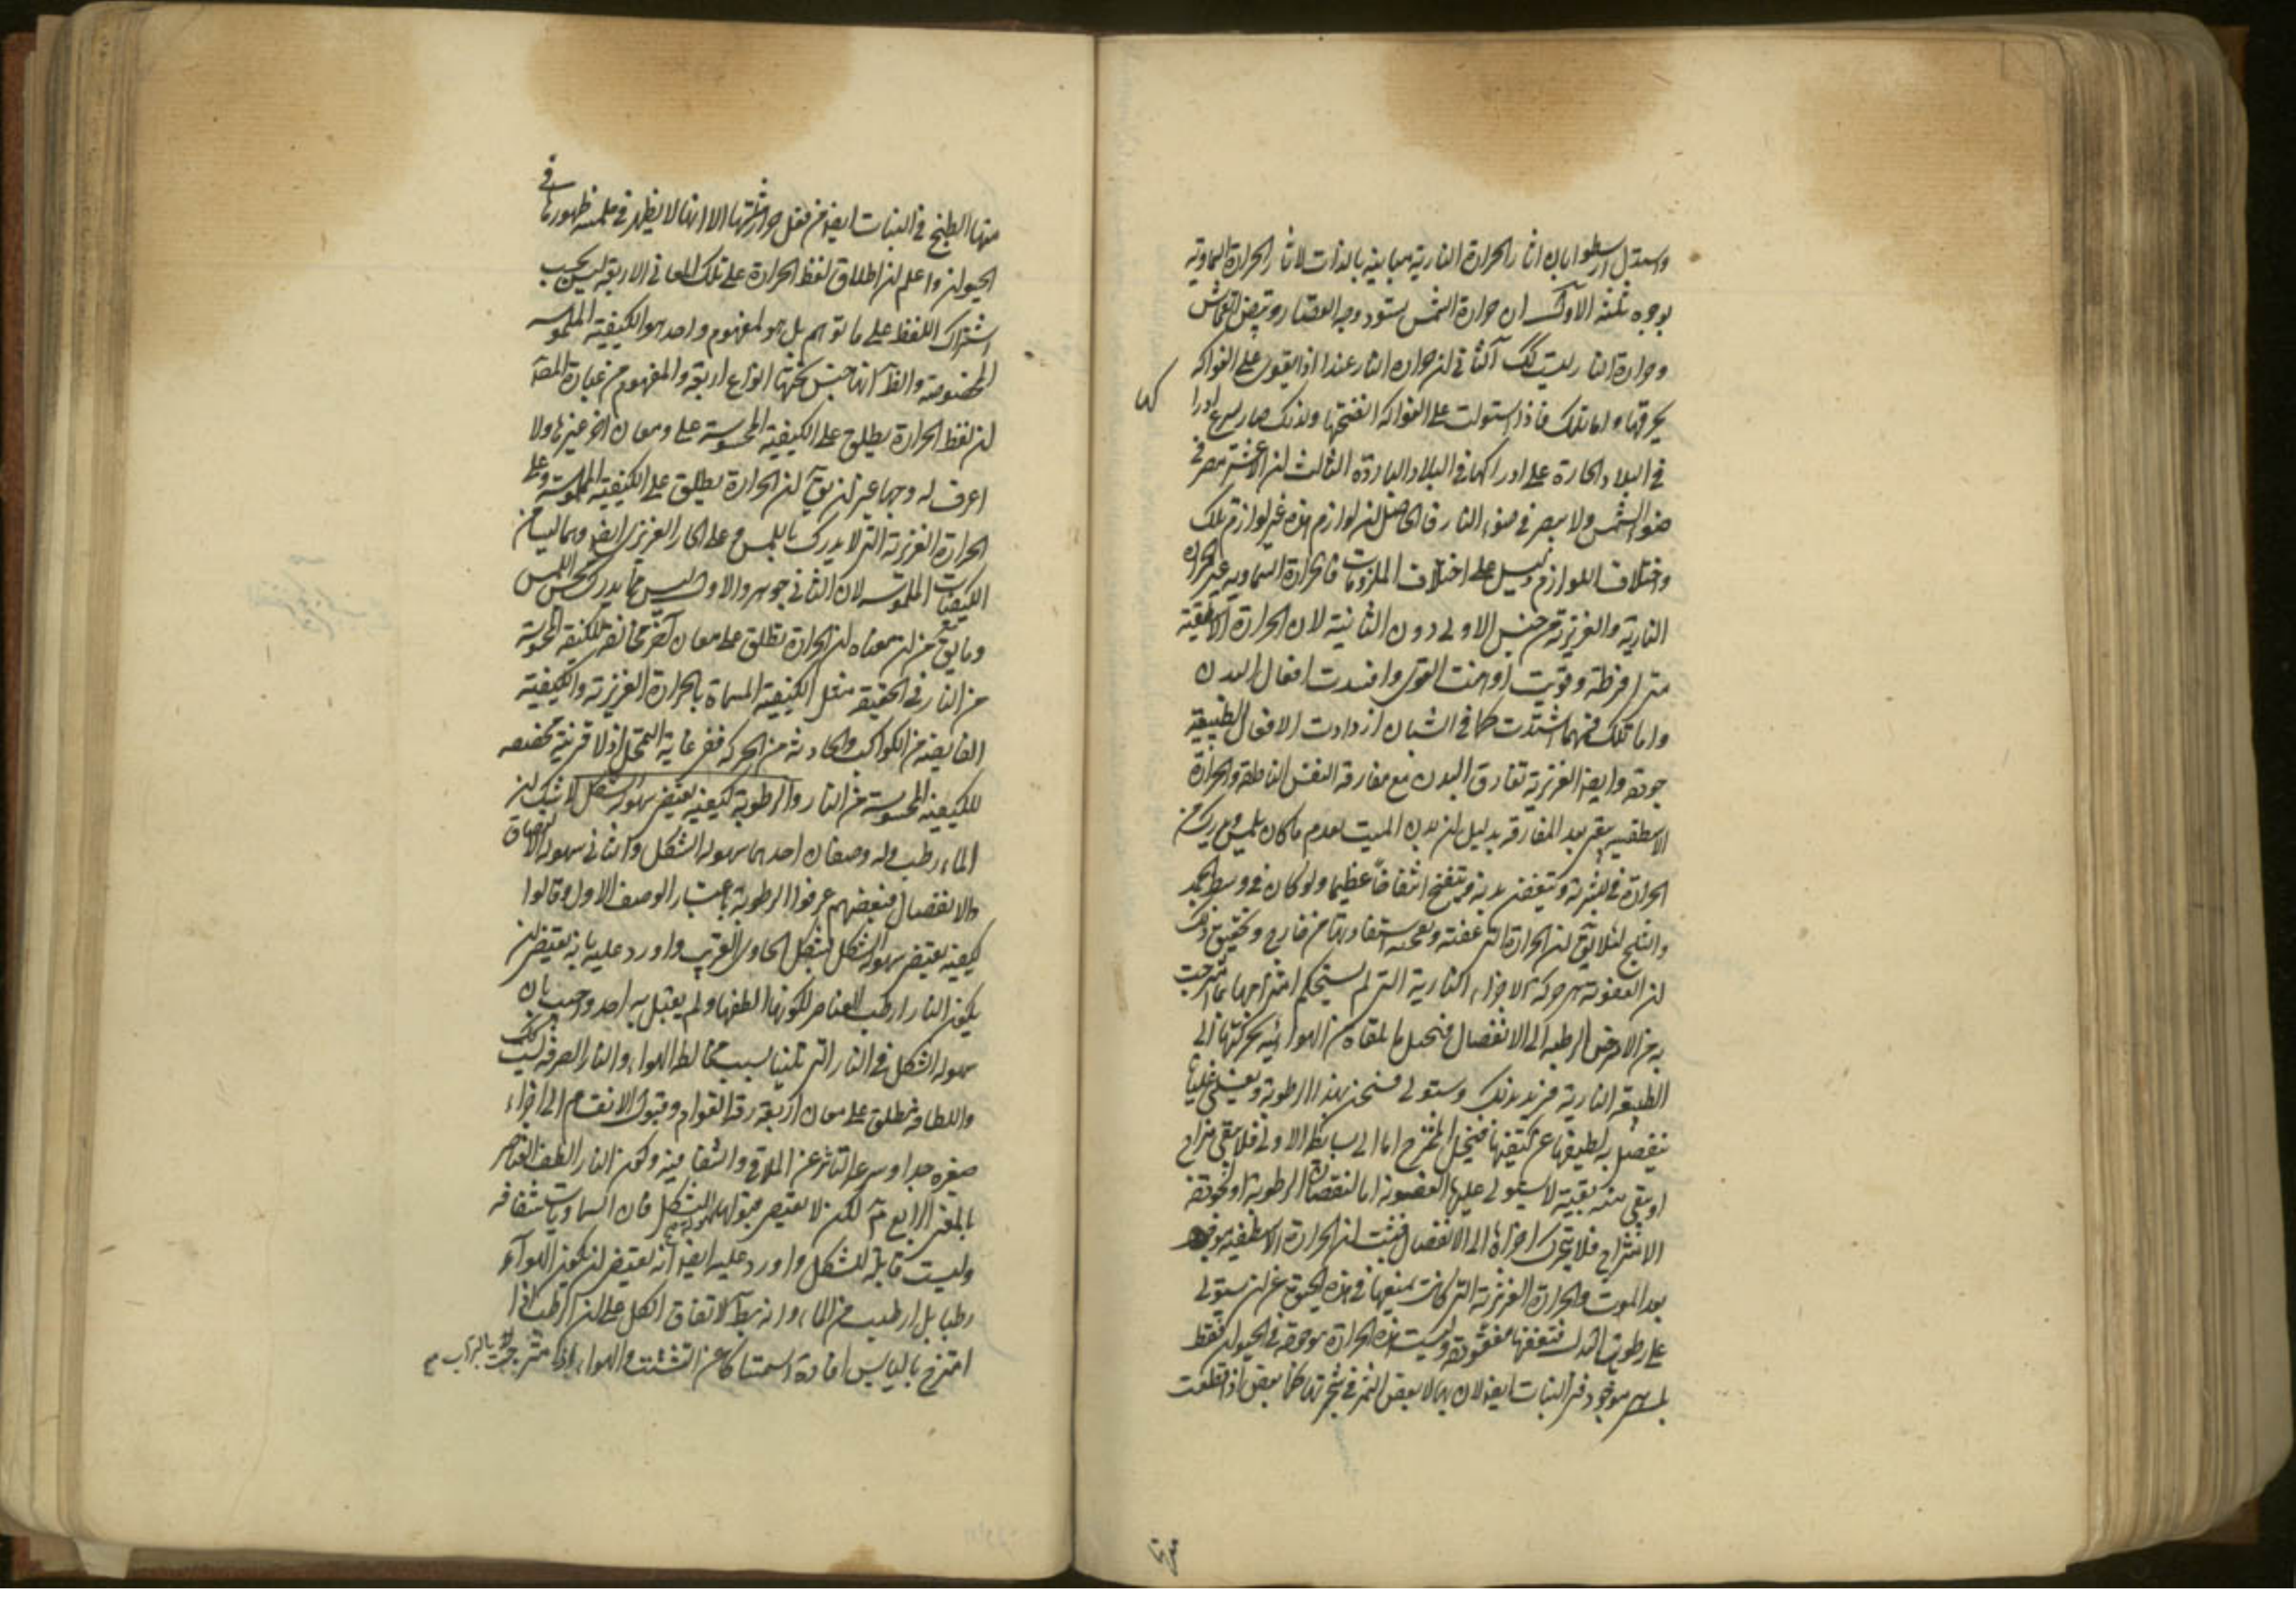 واستدل ارسطو بان اثار الحرارة النارية مباينة بالذات لاثار الحرارة السماوية
بوجوه ثلثة الاول ان حرارة الشمس يسود وجه القصار ويبيض القماش
وحرارة النار ليست كك الثاني ان حرارة النار عندنا اذا يقوى على الفواكه
يحرقها واما تلك فاذا استولت على الفواكه انضجتها ولذلك صار اسرع ادراكها
في البلاد الحارة على ادراكها في البلاد الباردة الثالث ان الاعشى يبصر في
ضوء الشمس ولا يبصر في ضوء النار فالحاصل ان لوازم هذه غير لوازم تلك
واختلاف اللوازم دليل على اختلاف الملزومات فالحرارة السماوية غير الحرارة
النارية والغريزية من جنس الاولى دون الثانية لان الحرارة الاسطقسية
متى افرطت وقويت اوهنت القوى وافسدت افعال البدن
واما تلك فمهما اشتدت كما في الشبان ازدادت الافعال الطبيعية
جودة وايضا الغريزية تفارق البدن مع مفارقة النفس الناطقة والحرارة
الاسطقسية تبقى بعد المفارقة بدليل ان بدن الميت بعدم ما كان يلمس ويدرك من
الحرارة في بشرته ويتعفن بدنه وينتفخ انتفاخا عظيما ولو كان في وسط الجمد
والثلج لئلا يتوهم ان الحرارة التي عفنته ونفخته استفادها من خارج وتحقيق ذلك
ان العفونة هي حركة الاجزاء النارية التي لم يستحكم امتزاجها بما امتزجت
به من الارض الرطبة الى الانفصال فيحيل ما يلقاه من الهوائية بحركتها الى
الطبيعة النارية فيزيد بذلك وتستولي فتسخن بهذا الرطوبة ويغلي غليانا
ينفصل به لطيفها عن كثيفها فينحل الممتزج اما الى بسائطه الاولى فلا يبقى مزاج
او يبقى منه بقية لا يستولي عليها العفونة اما لنقصان الرطوبة او لجودة
الامتزاج فلا يتحرك اجزاؤه الى الانفصال فثبت ان الحرارة الاسطقسية موجودة
بعد الموت والحرارة الغريزية التي كانت تمنعها في هذه الحيوة عن ان يستولي
على رطوبات البدن فتعفنها مفقودة وليست هذه الحرارة موجودة في الحيوان فقط
بل هي موجودة في النبات ايضا لانه بها لا يعفن الثمر في شجرتها كما يعفن اذا قطعت
منها
منها الطبخ في النبات ايضا من فعل حرارتها الا انها لا يظهر في ملمسه ظهورها في
الحيوان واعلم ان اطلاق لفظ الحرارة على تلك المعاني الاربعة ليس بحسب
اشتراك اللفظ على ما توهم بل هو لمفهوم واحد هو الكيفية الملموسة
المخصوصة والظ انها جنس تحتها انواع اربعة والمفهوم من عبارة المصنف
ان لفظ الحرارة يطلق على الكيفية المحسوسة وعلى معان اخر غيرها ولا
اعرف له وجها غير ان يق ان الحرارة يطلق على الكيفية الملموسة وعلى
الحرارة الغريزية التي لا يدرك باللمس وعلى الحار الغريزي ايضا وهما ليسا من
الكيفيات الملموسة لان الثاني جوهر والاول ليس مما يدرك بحس اللمس
وما يق من ان معناه ان الحرارة تطلق على معان اخر مخالفة للكيفية المحسوسة
من النار في الحقيقة مثل الكيفية المسماة بالحرارة الغريزية والكيفية
الفايضة من الكواكب والحادثة من الحركة ففي غاية التمحل اذ لا قرينة مخصصة
للكيفية المحسوسة من النار والرطوبة كيفية يقتضي سهولة التشكل لا شك ان
الماء رطب وله وصفان احدهما سهولة التشكل والثاني سهولة الالتصاق
والانفصال فبعضهم عرفوا الرطوبة باعتبار الوصف الاول وقالوا
كيفية يقتضي سهولة التشكل بشكل الحاوي الغريب واورد عليه بانه يقتضي ان
يكون النار ارطب العناصر لكونها الطفها ولم يقل به احد واجيب بان
سهولة التشكل في النار التي تلينا بسبب مخالطة الهواء والنار الصرفة ليست كك
واللطافة يطلق على معان اربعة رقة القوام وقبول الانقسام الى اجزاء
صغيرة جدا وسرعة التاثر عن الملاقي والشفافية وكون النار الطف العناصر
بالمعنى الرابع م لكن لا يقتضي سهولة قبولها للتشكل فان السماويات شفافة
وليست قابلة للتشكل واورد عليه ايضا انه يقتضي ان يكون الهواء
رطبا بل ارطب من الماء وانه بط لاتفاق الكل على ان الرطب اذا
امتزج باليابس افاده استمساكا عن التشتت والهواء اذا امتزجت بالتراب